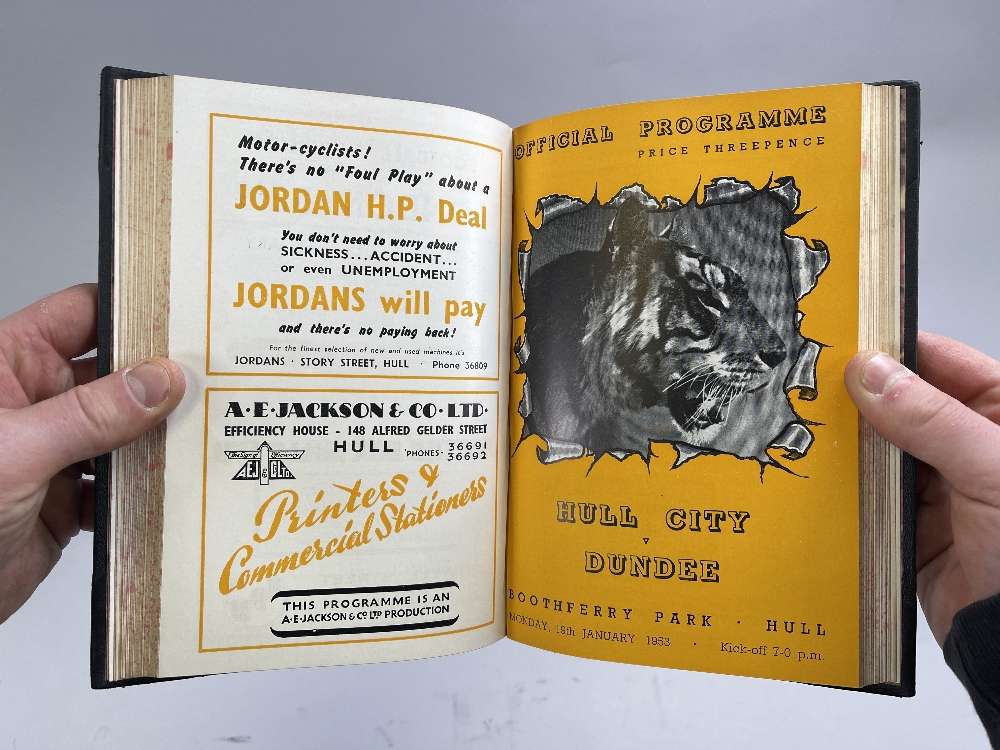 Motor-cyclists!
There's no "Foul Play" about a
JORDAN H.P. Deal
You don't need to worry about
SICKNESS...ACCIDENT...
or even UNEMPLOYMENT
JORDANS will pay
and there's no paying back!
For the finest selection of new and used machines it's
JORDANS · STORY STREET, HULL · Phone 36809
A·E·JACKSON & CO·LTD·
EFFICIENCY HOUSE - 148 ALFRED GELDER STREET
HULL 'PHONES· 36691
36692
The Sign of Efficiency
AEJ & Co LTD
Printers &
Commercial Stationers
THIS PROGRAMME IS AN
A·E·JACKSON & CO LTD PRODUCTION
OFFICIAL PROGRAMME
PRICE THREEPENCE
HULL CITY
v
DUNDEE
BOOTHFERRY PARK · HULL
MONDAY, 19th JANUARY 1953 · Kick-off 7-0 p.m.